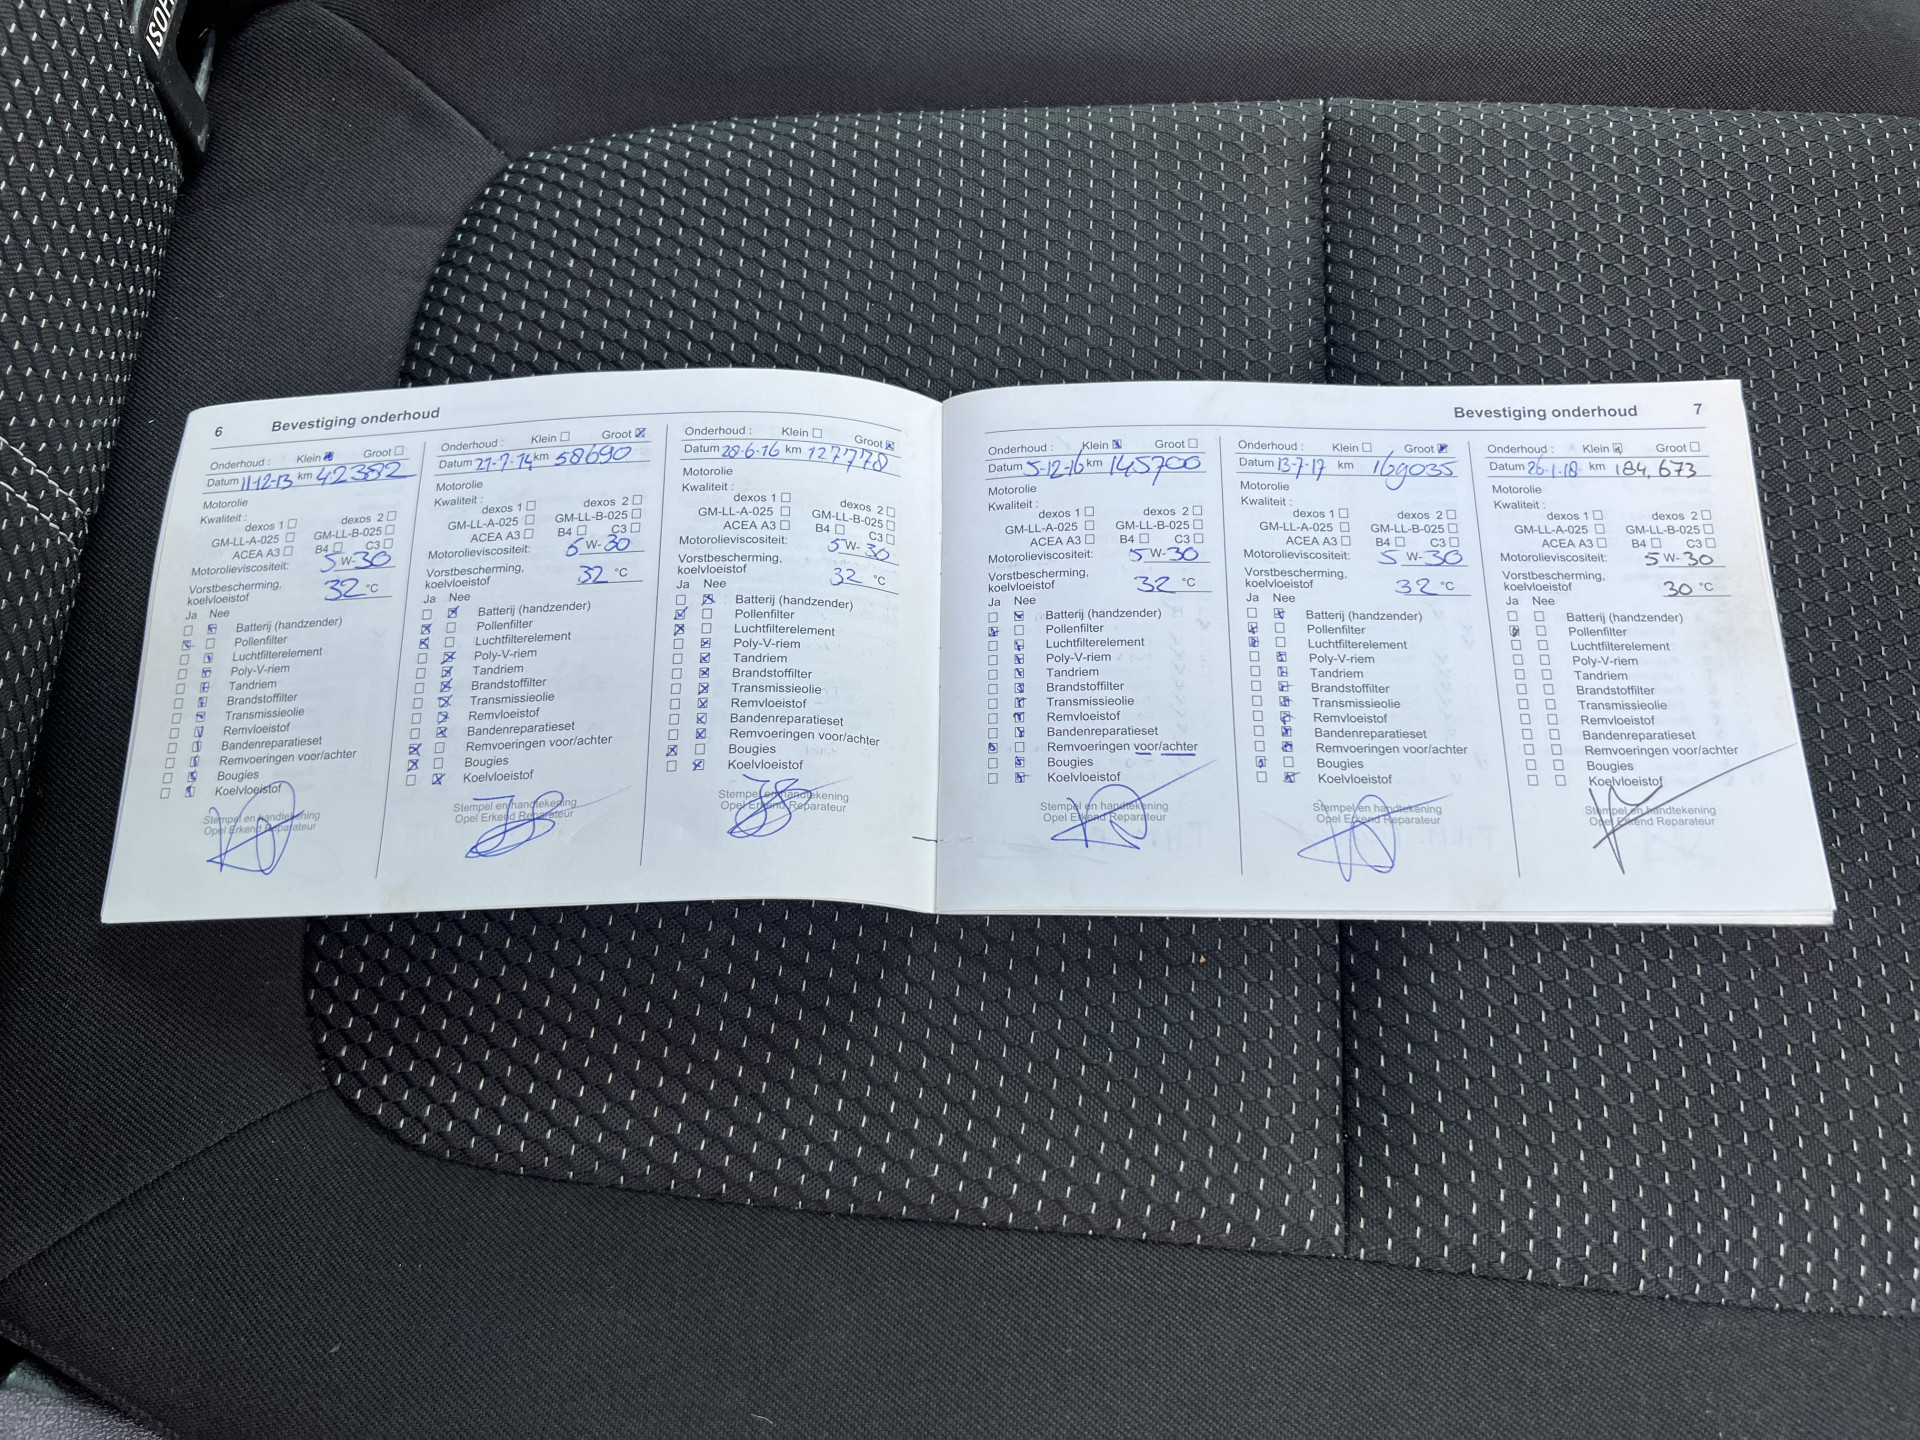 ISOF
6 Bevestiging onderhoud
Onderhoud : Klein Groot
Datum 11-12-13 km 42382
Motorolie
Kwaliteit :
dexos 1 dexos 2
GM-LL-A-025 GM-LL-B-025
ACEA A3 B4 C3
Motorolieviscositeit: 5 W-30
Vorstbescherming,
koelvloeistof 32 °C
Ja Nee
Batterij (handzender)
Pollenfilter
Luchtfilterelement
Poly-V-riem
Tandriem
Brandstoffilter
Transmissieolie
Remvloeistof
Bandenreparatieset
Remvoeringen voor/achter
Bougies
Koelvloeistof
Stempel en handtekening
Opel Erkend Reparateur
Onderhoud : Klein Groot
Datum 21-7-14 km 58690
Motorolie
Kwaliteit :
dexos 1 dexos 2
GM-LL-A-025 GM-LL-B-025
ACEA A3 B4 C3
Motorolieviscositeit: 5 W-30
Vorstbescherming,
koelvloeistof 32 °C
Ja Nee
Batterij (handzender)
Pollenfilter
Luchtfilterelement
Poly-V-riem
Tandriem
Brandstoffilter
Transmissieolie
Remvloeistof
Bandenreparatieset
Remvoeringen voor/achter
Bougies
Koelvloeistof
Stempel en handtekening
Opel Erkend Reparateur
Onderhoud : Klein Groot
Datum 28-6-16 km 127778
Motorolie
Kwaliteit :
dexos 1 dexos 2
GM-LL-A-025 GM-LL-B-025
ACEA A3 B4 C3
Motorolieviscositeit: 5 W-30
Vorstbescherming,
koelvloeistof 32 °C
Ja Nee
Batterij (handzender)
Pollenfilter
Luchtfilterelement
Poly-V-riem
Tandriem
Brandstoffilter
Transmissieolie
Remvloeistof
Bandenreparatieset
Remvoeringen voor/achter
Bougies
Koelvloeistof
Stempel en handtekening
Opel Erkend Reparateur
Bevestiging onderhoud 7
Onderhoud : Klein Groot
Datum 5-12-16 km 145700
Motorolie
Kwaliteit :
dexos 1 dexos 2
GM-LL-A-025 GM-LL-B-025
ACEA A3 B4 C3
Motorolieviscositeit: 5 W-30
Vorstbescherming,
koelvloeistof 32 °C
Ja Nee
Batterij (handzender)
Pollenfilter
Luchtfilterelement
Poly-V-riem
Tandriem
Brandstoffilter
Transmissieolie
Remvloeistof
Bandenreparatieset
Remvoeringen voor/achter
Bougies
Koelvloeistof
Stempel en handtekening
Opel Erkend Reparateur
Onderhoud : Klein Groot
Datum 13-7-17 km 169035
Motorolie
Kwaliteit :
dexos 1 dexos 2
GM-LL-A-025 GM-LL-B-025
ACEA A3 B4 C3
Motorolieviscositeit: 5 W-30
Vorstbescherming,
koelvloeistof 32 °C
Ja Nee
Batterij (handzender)
Pollenfilter
Luchtfilterelement
Poly-V-riem
Tandriem
Brandstoffilter
Transmissieolie
Remvloeistof
Bandenreparatieset
Remvoeringen voor/achter
Bougies
Koelvloeistof
Stempel en handtekening
Opel Erkend Reparateur
Onderhoud : Klein Groot
Datum 26-1-18 km 184,673
Motorolie
Kwaliteit :
dexos 1 dexos 2
GM-LL-A-025 GM-LL-B-025
ACEA A3 B4 C3
Motorolieviscositeit: 5 W-30
Vorstbescherming,
koelvloeistof 30 °C
Ja Nee
Batterij (handzender)
Pollenfilter
Luchtfilterelement
Poly-V-riem
Tandriem
Brandstoffilter
Transmissieolie
Remvloeistof
Bandenreparatieset
Remvoeringen voor/achter
Bougies
Koelvloeistof
Stempel en handtekening
Opel Erkend Reparateur